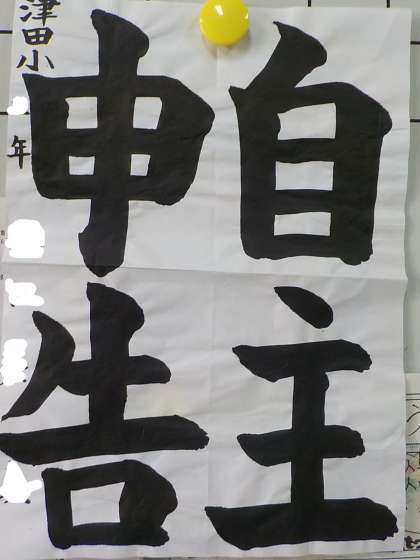 自主
申告
津田小
年